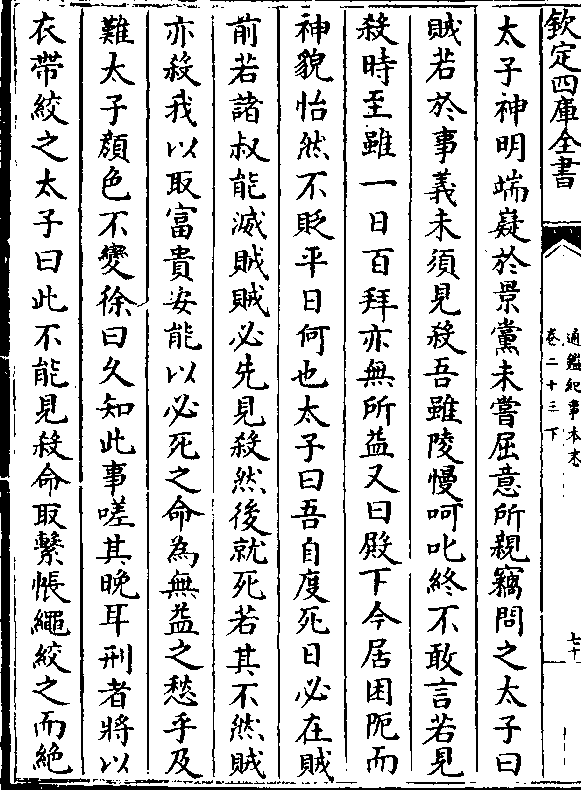 欽定四庫全書
通鑑紀事本末
卷二十三下
七十
太子神明端嶷於景黨未嘗屈意所親竊問之太子曰
賊若於事義未須見殺吾雖陵慢呵叱終不敢言若見
殺時至雖一日百拜亦無所益又曰殿下今居困阨而
神貌怡然不貶平日何也太子曰吾自度死日必在賊
前若諸叔能滅賊賊必先見殺然後就死若其不然賊
亦殺我以取富貴安能以必死之命為無益之愁乎及
難太子顔色不變徐曰久知此事嗟其晚耳刑者將以
衣帶絞之太子曰此不能見殺命取繫帳繩絞之而絶